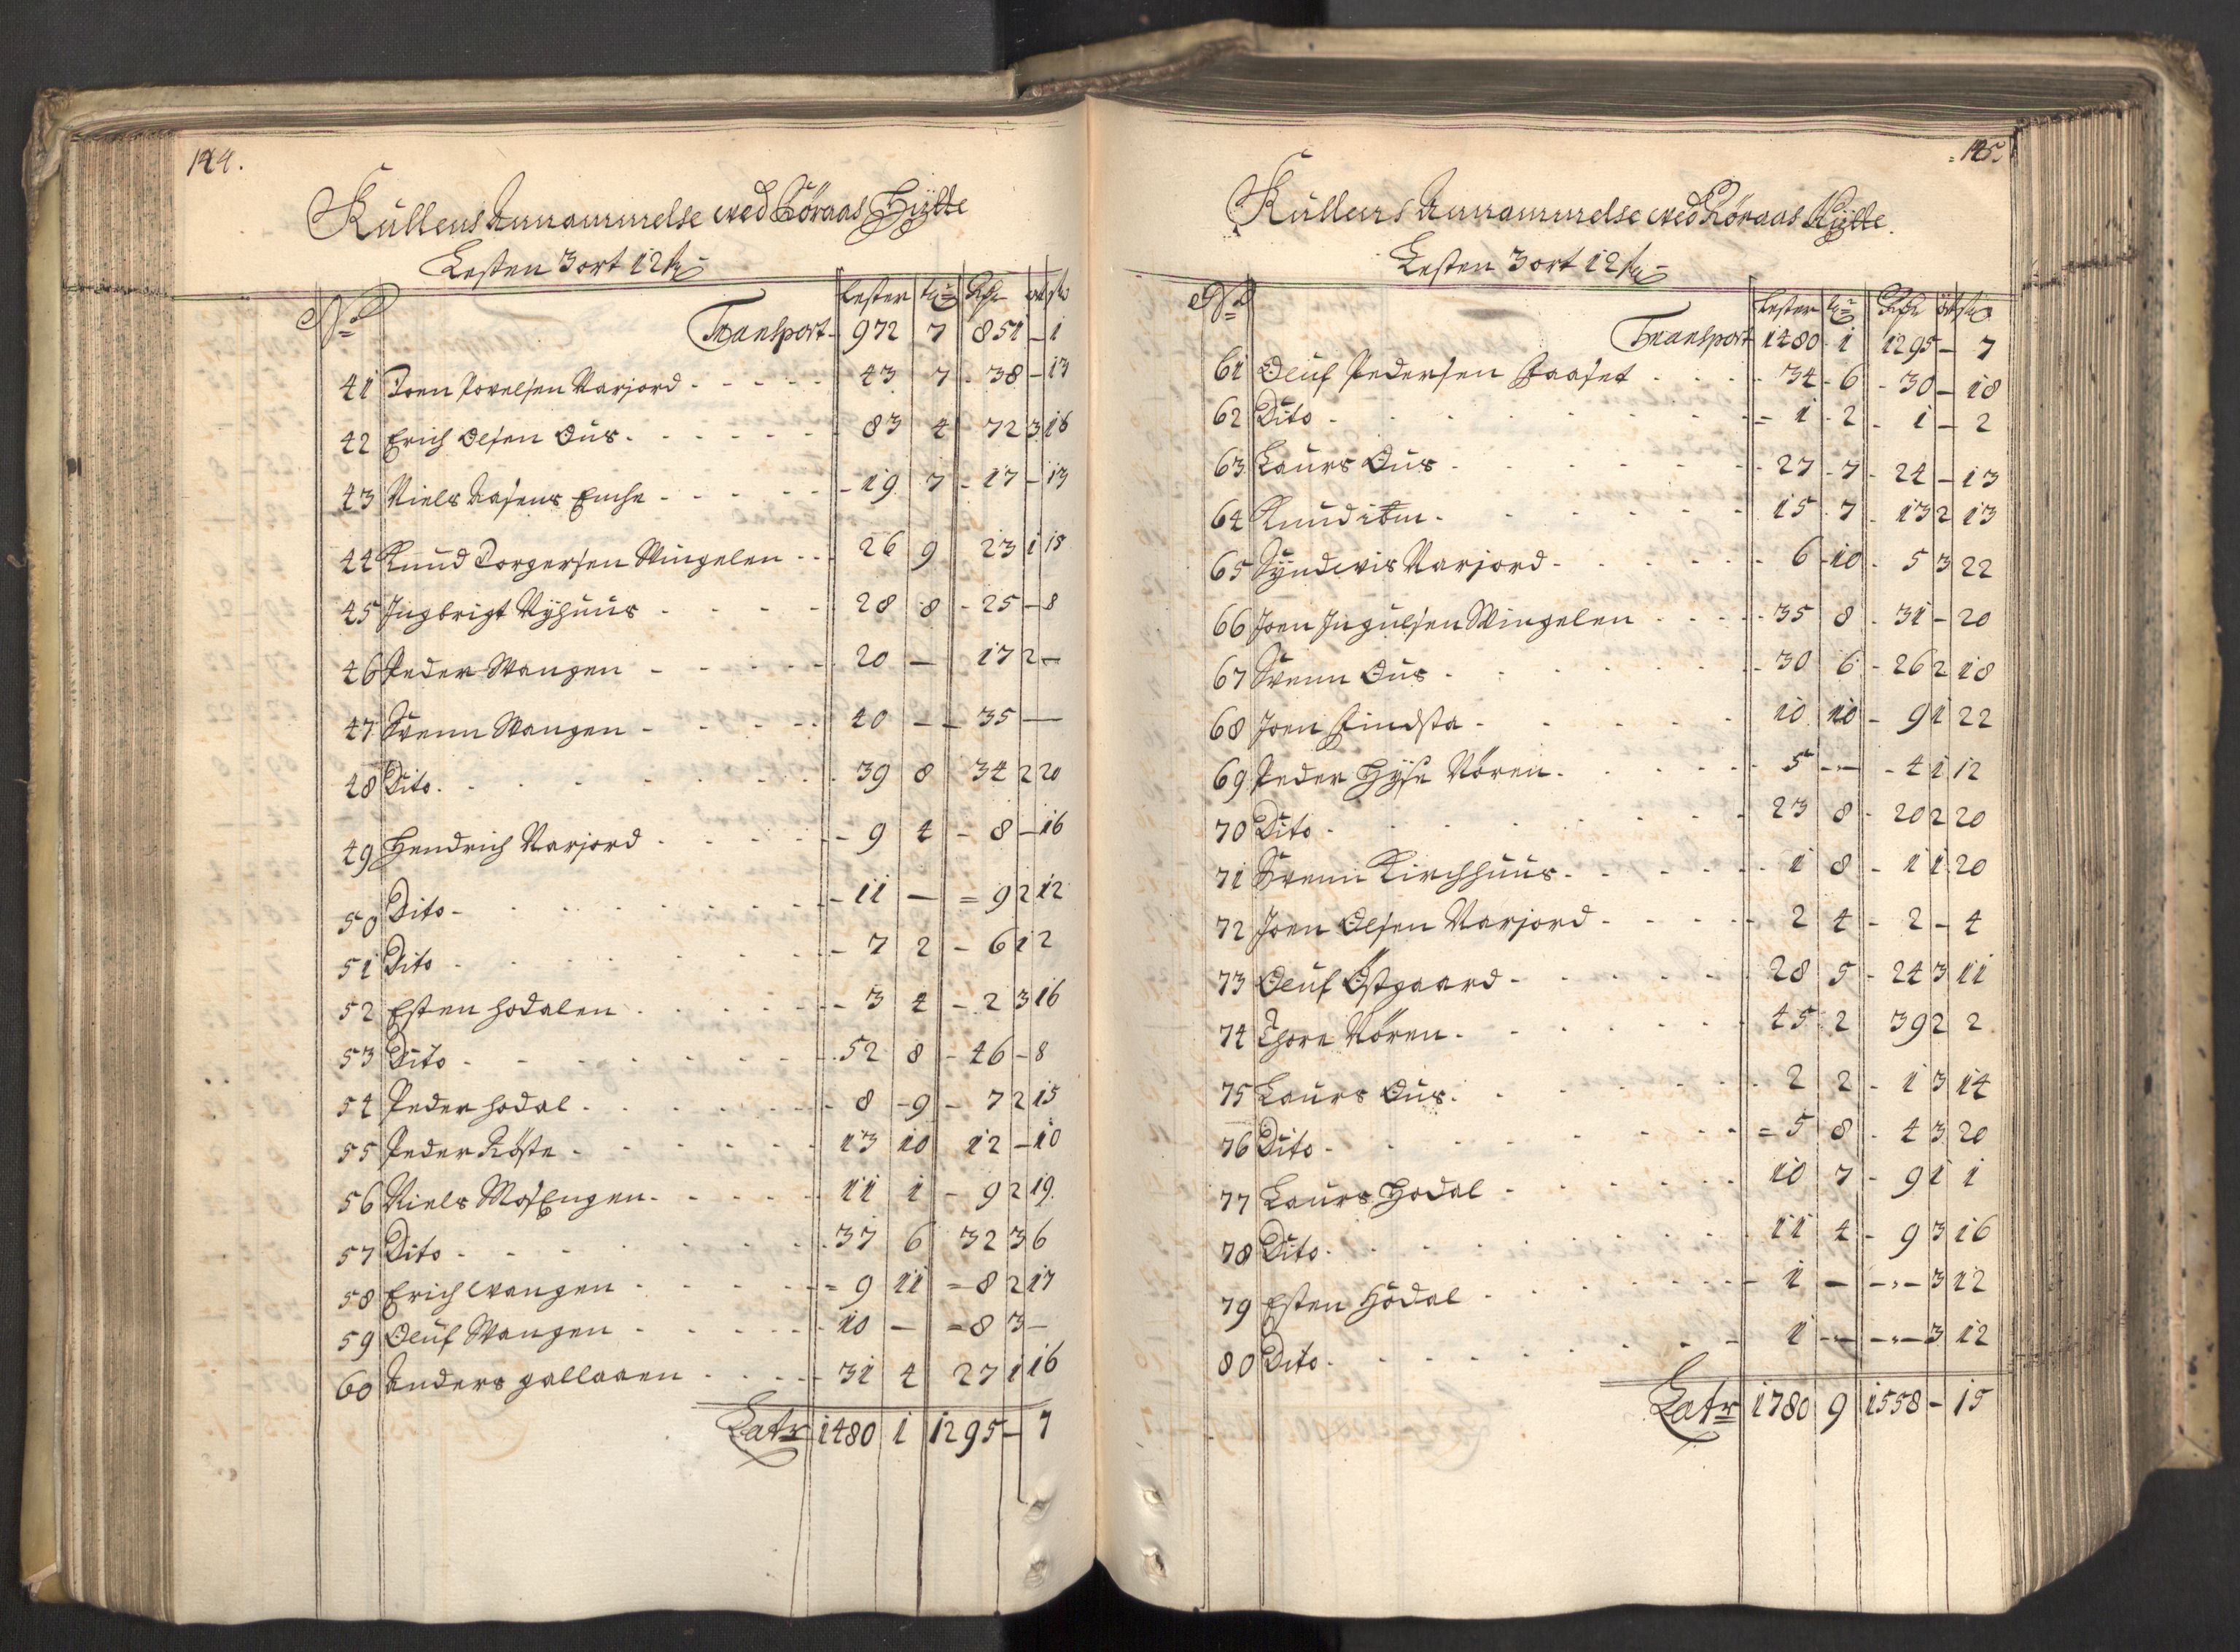 144.
Küllens Annammelse wed Röraas Hytte
Lesten 3 ort 12 sk
No Lester tr Rdr ort sk
Transport 972 7 851 – 1
41 Joen Povelsen Narjord 43 7 38 – 13
42 Erich Olsen Ous 83 4 72 3 16
43 Niels Aasens Enche 19 7 17 – 13
44 Knud Torgersen Wingelen 26 9 23 1 15
45 Ingbrigt Nÿhuus 28 8 25 – 8
46 Peder Wangen 20 – 17 2 –
47 Svenn Wangen 40 – 35 –
48 Dito 39 8 34 2 20
49 Hendrich Narjord 9 4 8 – 16
50 Dito 11 – 9 2 12
51 Dito 7 2 6 1 2
52 Esten Hodalen 3 4 2 3 16
53 Dito 52 8 46 – 8
54 Peder Hodal 8 9 7 2 15
55 Peder Röste 13 10 12 – 10
56 Niels MosEngen 11 1 9 2 19
57 Dito 37 6 32 3 6
58 Erich Wangen 9 11 8 2 17
59 Oluf Wangen 10 – 8 3 –
60 Anders Gallaaen 31 4 27 1 16
Latr 1480 1 1295 – 7
145.
Küllens Annammelse wed Röraas Hytte.
Lesten 3 ort 12 sk
No Lester tr Rdr ort sk
Transport 1480 1 1295 – 7
61 Oluf Pedersen Faaset 34 6 30 – 18
62 Dito 1 2 1 – 2
63 Laurs Ous 27 7 24 – 13
64 Knud ibm 15 7 13 2 13
65 Sÿndwis Narjord 6 10 5 3 22
66 Joen Ingulsen Wingelen 35 8 31 – 20
67 Svenn Ous 30 6 26 2 18
68 Joen Findsta 10 10 9 1 22
69 Peder Hÿse Nören 5 – 4 1 12
70 Dito 23 8 20 2 20
71 Svenn Kirchhuus 1 8 1 1 20
72 Joen Olsen Narjord 2 4 2 – 4
73 Oluf Östgaard 28 5 24 3 11
74 Thore Nören 45 2 39 2 2
75 Laurs Ous 2 2 1 3 14
76 Dito 5 8 4 3 20
77 Laurs Hodal 10 7 9 1 1
78 Dito 11 4 9 3 16
79 Esten Hodal 1 – – 3 12
80 Dito 1 – – 3 12
Latr 1780 9 1558 – 15